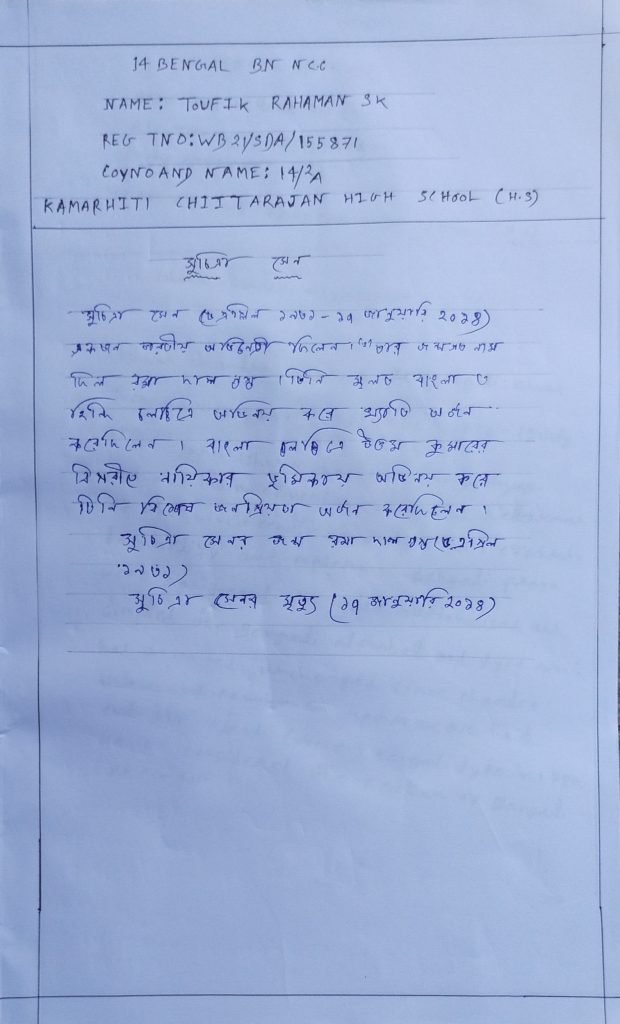 14 BENGAL BN NCC
NAME: TOUFIK RAHAMAN SK
REG TNO: WB21/SDA/155871
COYNO AND NAME: 14/2A
KAMARHITI CHITTARAJAN HIGH SCHOOL (H.S)
সুচিত্রা সেন
সুচিত্রা সেন (৬ এপ্রিল ১৯৩১ - ১৭ জানুয়ারি ২০১৪)
একজন ভারতীয় অভিনেত্রী ছিলেন। তার জন্মগত নাম
ছিল রমা দাশ গুপ্ত। তিনি মূলত বাংলা ও
হিন্দি চলচিত্রে অভিনয় করে খ্যাতি অর্জন
করেছিলেন। বাংলা চলচিত্রে উত্তম কুমারের
বিপরীতে নায়িকার ভূমিকায় অভিনয় করে
তিনি বিশেষ জনপ্রিয়তা অর্জন করেছিলেন।
সুচিত্রা সেনের জন্ম রমা দাশ গুপ্ত (৬ এপ্রিল
১৯৩১)
সুচিত্রা সেনের মৃত্যু (১৭ জানুয়ারি ২০১৪)